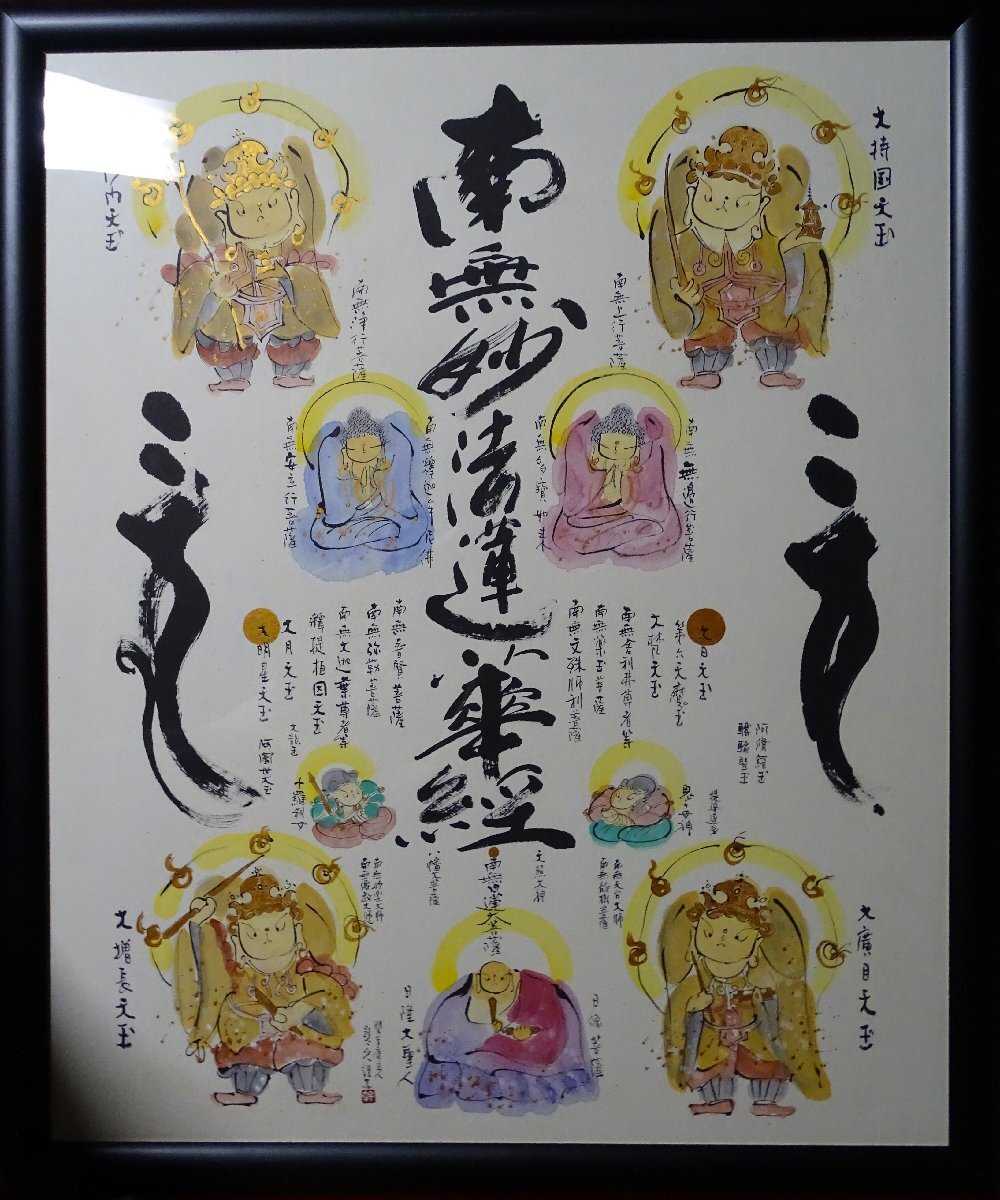 南無妙法蓮華經
大持国天王
南無上行菩薩
南無無邊行菩薩
南無多寶如来
南無浄行菩薩
南無安立行菩薩
大日天王
第六天魔王
大梵天王
南無舎利弗尊者等
南無薬王菩薩
南無文殊師利菩薩
南無普賢菩薩
南無弥勒菩薩
南無大迦葉尊者等
釋提桓因天王
大月天王
大明星天王
阿修羅王
轉輪聖王
鬼子母神
大龍王
阿闍世大王
十羅刹女
大廣目天王
南無天台大師
南無龍樹菩薩
天照大神
南無日蓮菩薩
八幡大菩薩
南無妙楽大師
南無傳教大師
大増長天王
日像菩薩
日隆大聖人